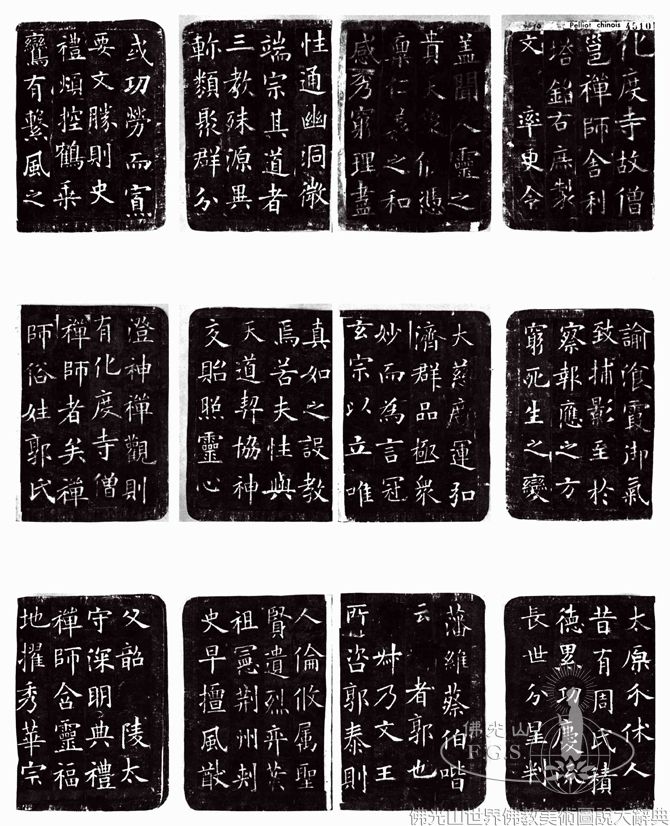 Pelliot chinois 4510
化度寺故僧
邕禪師舍利
塔銘右庶製
文 率更令
盖聞人靈之
貴 憑
稟仁義之和
感秀窮理盡
性通幽洞微
端宗其道者
三教殊源異
軫類聚群分
或功勞而賔
要文勝則史
禮煩控鶴乘
鸞有繫風之
諭飡霞御氣
致捕影至於
察報應之方
窮死生之變
大慈廣運弘
濟群品極衆
妙而為言冠
玄宗以立唯
真如之設教
焉若夫性與
天道契協神
交貽照靈心
澄神禪觀則
有化度寺僧
禪師者矣禪
師俗姓郭氏
太原介休人
昔有周氏積
德累功慶流
長世分星判
藩維蔡伯喈
云 者郭也
乃文王
所咨郭泰則
人倫攸属聖
賢遺烈弈葉
祖憲荆州刾
史早擅風猷
父韶 陵太
守深明典禮
禪師含靈福
地擢秀華宗
佛光山
F.G.S.
佛光山世界佛教美術圖說大辭典